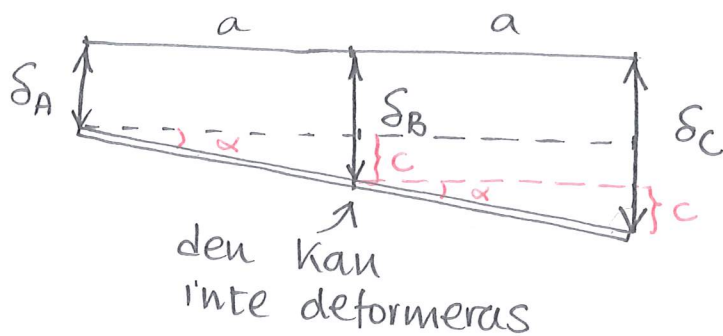 a a
δA δB δC
α c
α c
den kan
inte deformeras